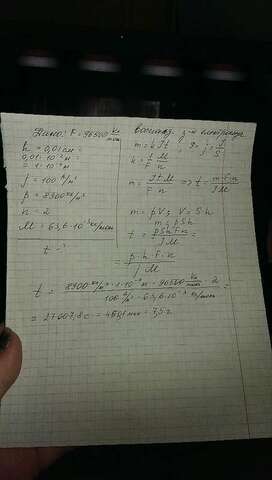 Дано: F = 96500 Кл/моль
h = 0,01 см =
0,01·10⁻² м =
= 1·10⁻⁴ м
j = 100 А/м²
p = 8900 кг/м³
n = 2
M = 63,6·10⁻³ кг/моль
t - ?
m = kIt
k = 1/F M/n
m = ItM/Fn => t = mFn/IM
m = pV; V = S·h
m = pSh
t = pShFn/IM =
= p·h·F·n/jM
t = 8900 кг/м³·1·10⁻⁴ м·96500 Кл/моль·2/100 А/м²·63,6·10⁻³ кг/моль =
= 27007,8 с =